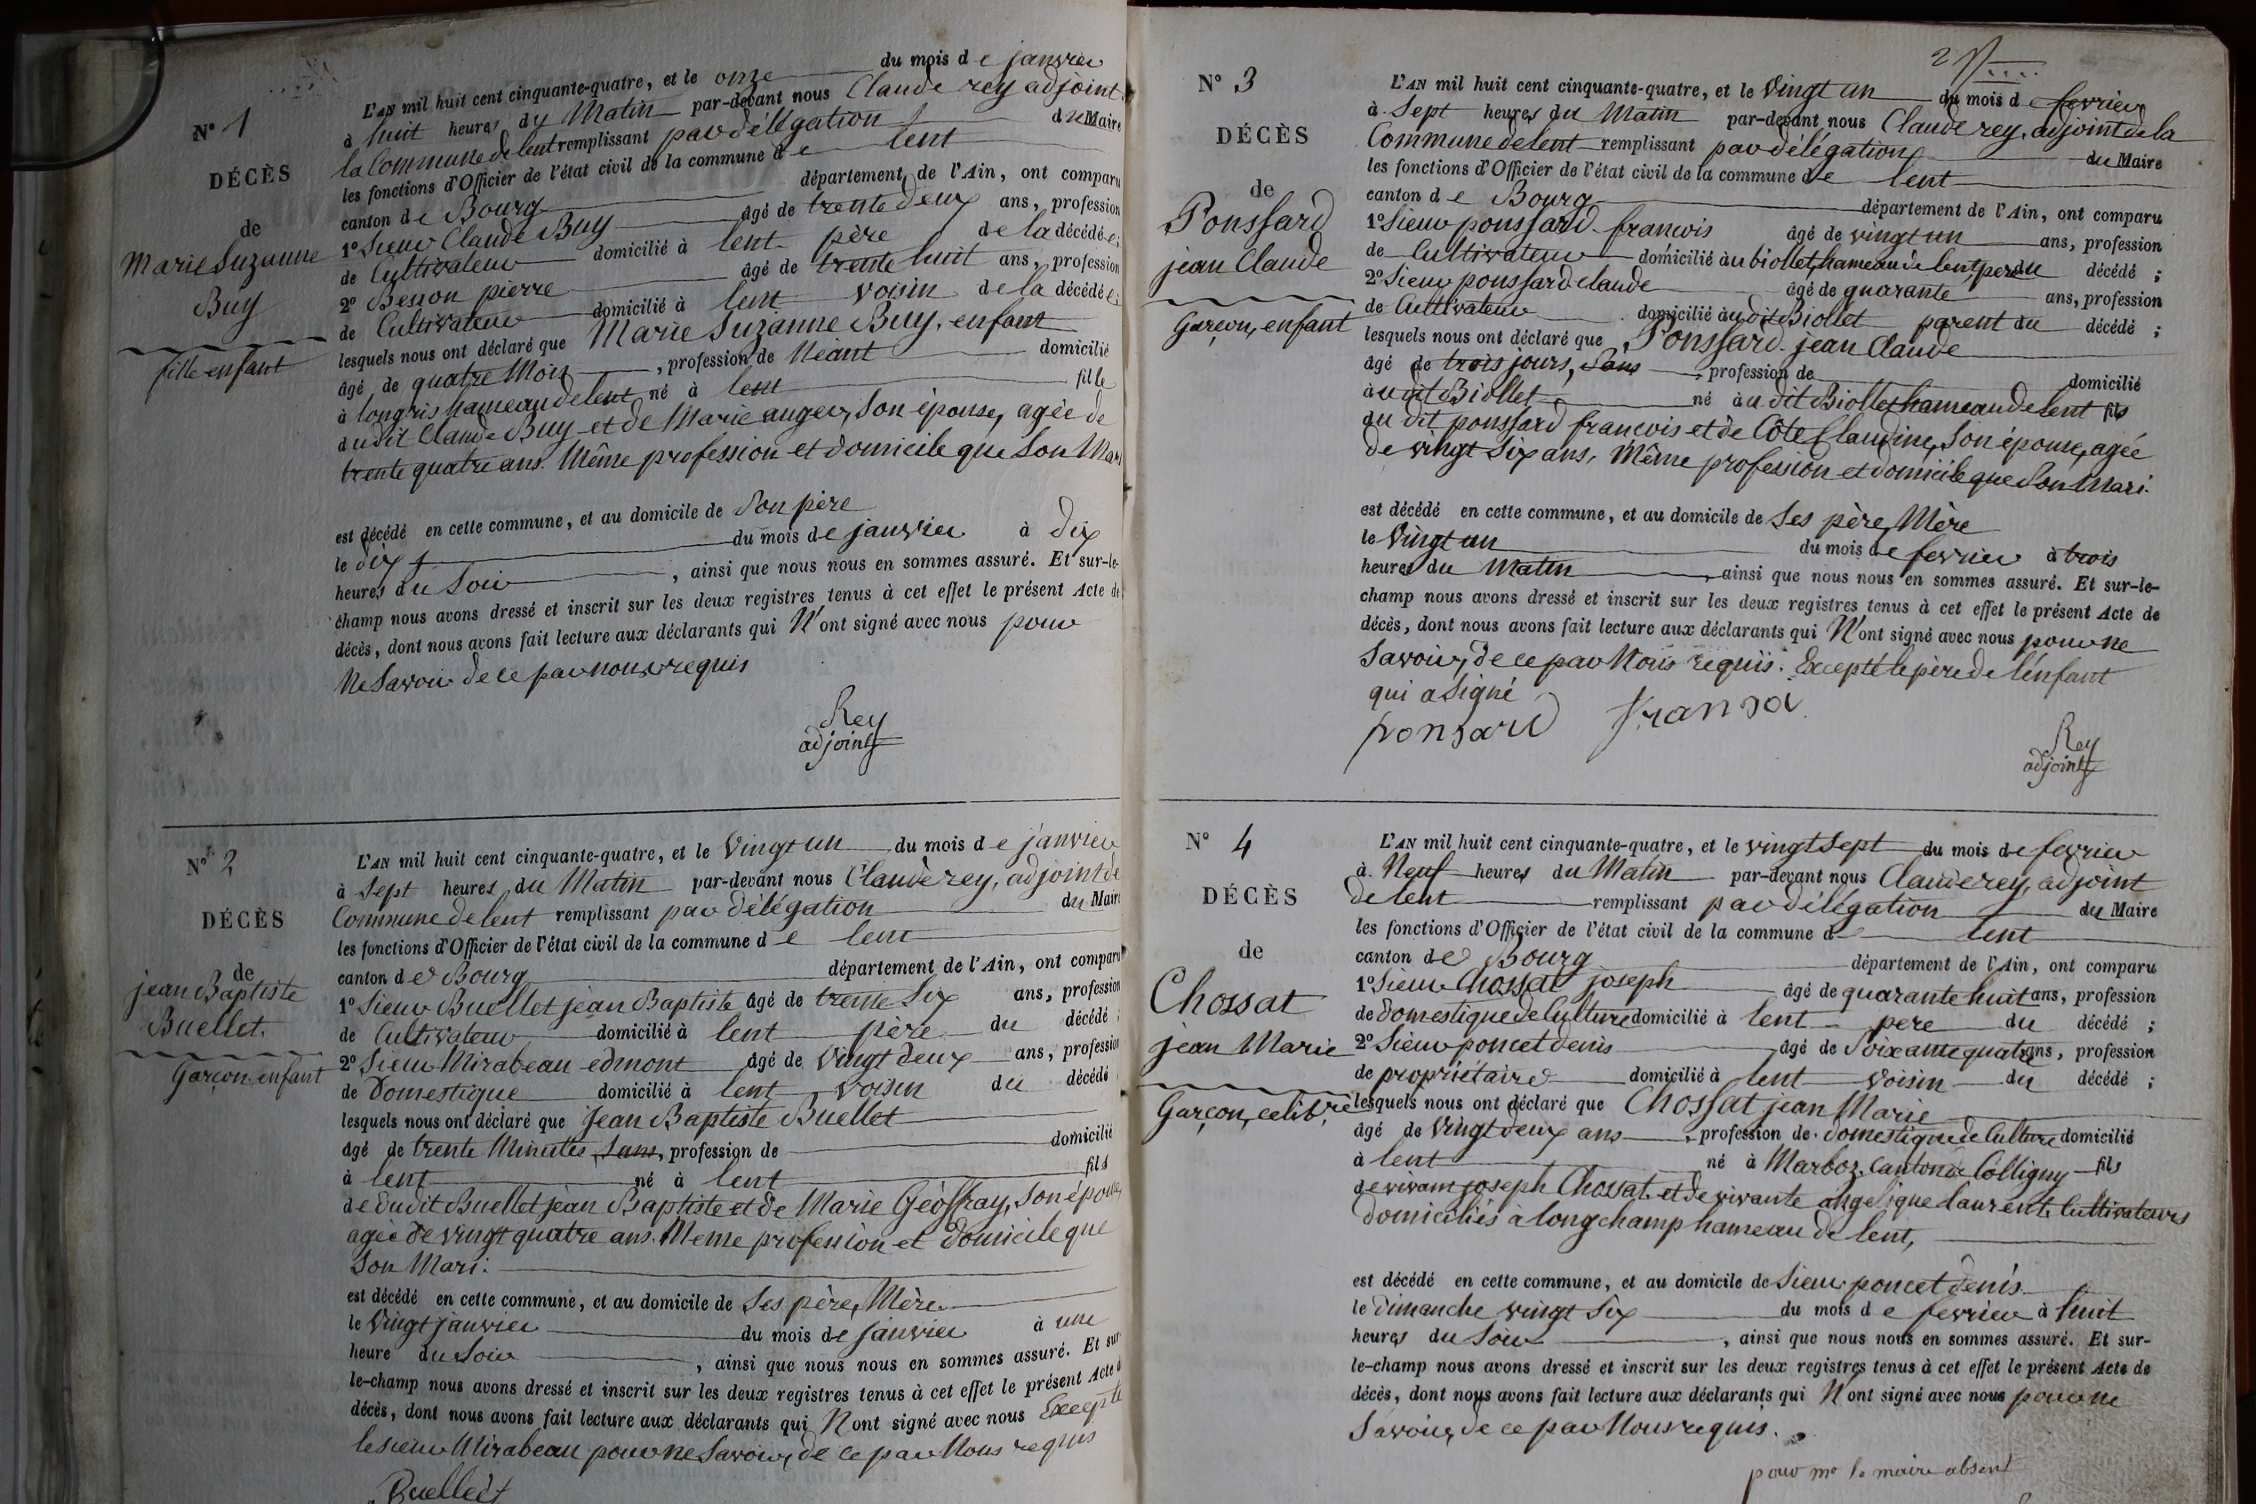 N° 1
DÉCÈS
de
Marie Suzanne
Buy
fille enfant
L'AN mil huit cent cinquante-quatre, et le onze du mois de janvier
à huit heures du Matin par-devant nous Claude rey adjoint
la Commune de lent remplissant par délégation du Maire
les fonctions d'Officier de l'état civil de la commune de lent
canton de Bourg département de l'Ain, ont comparu
1° Sieur Claude Buy âgé de trente deux ans, profession
de Cultivateur domicilié à lent père de la décédée;
2° Besson pierre âgé de trente huit ans, profession
de Cultivateur domicilié à lent voisin de la décédée;
lesquels nous ont déclaré que Marie Suzanne Buy, enfant
âgé de quatre Mois, profession de Néant domicilié
à longris hameau de lent né à lent fille
du dit Claude Buy et de Marie auger, Son épouse, agée de
trente quatre ans. Même profession et domicile que Son Mari
est décédé en cette commune, et au domicile de Son père
le dix du mois de janvier à dix
heures du Soir, ainsi que nous nous en sommes assuré. Et sur-le-
champ nous avons dressé et inscrit sur les deux registres tenus à cet effet le présent Acte de
décès, dont nous avons fait lecture aux déclarants qui N'ont signé avec nous pour
Ne Savoir de ce par nous requis
Rey
adjoint
N° 2
DÉCÈS
de
jean Baptiste
Buellet.
Garçon enfant
L'AN mil huit cent cinquante-quatre, et le Vingt un du mois de janvier
à Sept heures du Matin par-devant nous Claude rey, adjoint de
Commune de lent remplissant par délégation du Maire
les fonctions d'Officier de l'état civil de la commune de lent
canton de Bourg département de l'Ain, ont comparu
1° Sieur Buellet jean Baptiste âgé de trente Six ans, profession
de Cultivateur domicilié à lent père du décédé;
2° Sieur Mirabeau edmont âgé de Vingt deux ans, profession
de Domestique domicilié à lent voisin du décédé
lesquels nous ont déclaré que Jean Baptiste Buellet
âgé de trente Minutes, Sans, profession de domicilié
à lent né à lent fils
de dudit Buellet jean Baptiste et de Marie Géoffray, Son épouse,
agée de vingt quatre ans. Meme profession et domicile que
Son Mari.
est décédé en cette commune, et au domicile de Ses père, Mère
le Vingt janvier du mois de janvier à une
heure du Soir, ainsi que nous nous en sommes assuré. Et sur-
le-champ nous avons dressé et inscrit sur les deux registres tenus à cet effet le présent Acte de
décès, dont nous avons fait lecture aux déclarants qui N'ont signé avec nous Excepté
le sieur Mirabeau pour ne Savoir, de ce par Nous requis
Buellet
2
N° 3
DÉCÈS
de
Ponssard
jean Claude
Garçon, enfant
L'AN mil huit cent cinquante-quatre, et le Vingt un du mois de fevrier
à Sept heures du Matin par-devant nous Claude rey, adjoint de la
Commune de lent remplissant par délégation du Maire
les fonctions d'Officier de l'état civil de la commune de lent
canton de Bourg département de l'Ain, ont comparu
1° Sieur ponssard francois âgé de vingt un ans, profession
de Cultivateur domicilié au biollet, hameau de lent, père du décédé;
2° Sieur ponssard claude âgé de quarante ans, profession
de Cultivateur domicilié au dit Biollet parent du décédé;
lesquels nous ont déclaré que Ponssard jean Claude
âgé de trois jours, Sans, profession de domicilié
à au dit Biollet né à au dit Biollet hameau de lent fils
du dit ponssard francois et de Côte Claudine, Son épouse, agée
de vingt Six ans, Même profession et domicile que Son Mari.
est décédé en cette commune, et au domicile de Ses père, Mère
le Vingt un du mois de fevrier à trois
heures du Matin, ainsi que nous nous en sommes assuré. Et sur-le-
champ nous avons dressé et inscrit sur les deux registres tenus à cet effet le présent Acte de
décès, dont nous avons fait lecture aux déclarants qui N'ont signé avec nous pour ne
Savoir, de ce par Nous requis. Excepté le père de l'enfant
qui a Signé
ponsard fransa
Rey
adjoint
N° 4
DÉCÈS
de
Chossat
jean Marie
Garçon, celibre
L'AN mil huit cent cinquante-quatre, et le vingt Sept du mois de fevrier
à Neuf heures du Matin par-devant nous Claude rey, adjoint
de lent remplissant par délégation du Maire
les fonctions d'Officier de l'état civil de la commune d lent
canton de Bourg département de l'Ain, ont comparu
1° Sieur Chossat joseph âgé de quarante huit ans, profession
de Domestique de Culture domicilié à lent père du décédé;
2° Sieur poncet denis âgé de Soixante quatre ans, profession
de propriétaire domicilié à lent voisin du décédé;
lesquels nous ont déclaré que Chossat jean Marie
âgé de Vingt deux ans, profession de domestique de Culture domicilié
à lent né à Marboz, Canton de Colligny fils
de vivant joseph Chossat et de vivante angelique laurent Cultivateurs
domiciliés à longchamp hameau de lent,
est décédé en cette commune, et au domicile de Sieur poncet denis
le dimanche vingt Six du mois de fevrier à huit
heures du Soir, ainsi que nous nous en sommes assuré. Et sur-
le-champ nous avons dressé et inscrit sur les deux registres tenus à cet effet le présent Acte de
décès, dont nous avons fait lecture aux déclarants qui N'ont signé avec nous pour ne
Savoir, de ce par Nous requis.
pour mr le maire absent